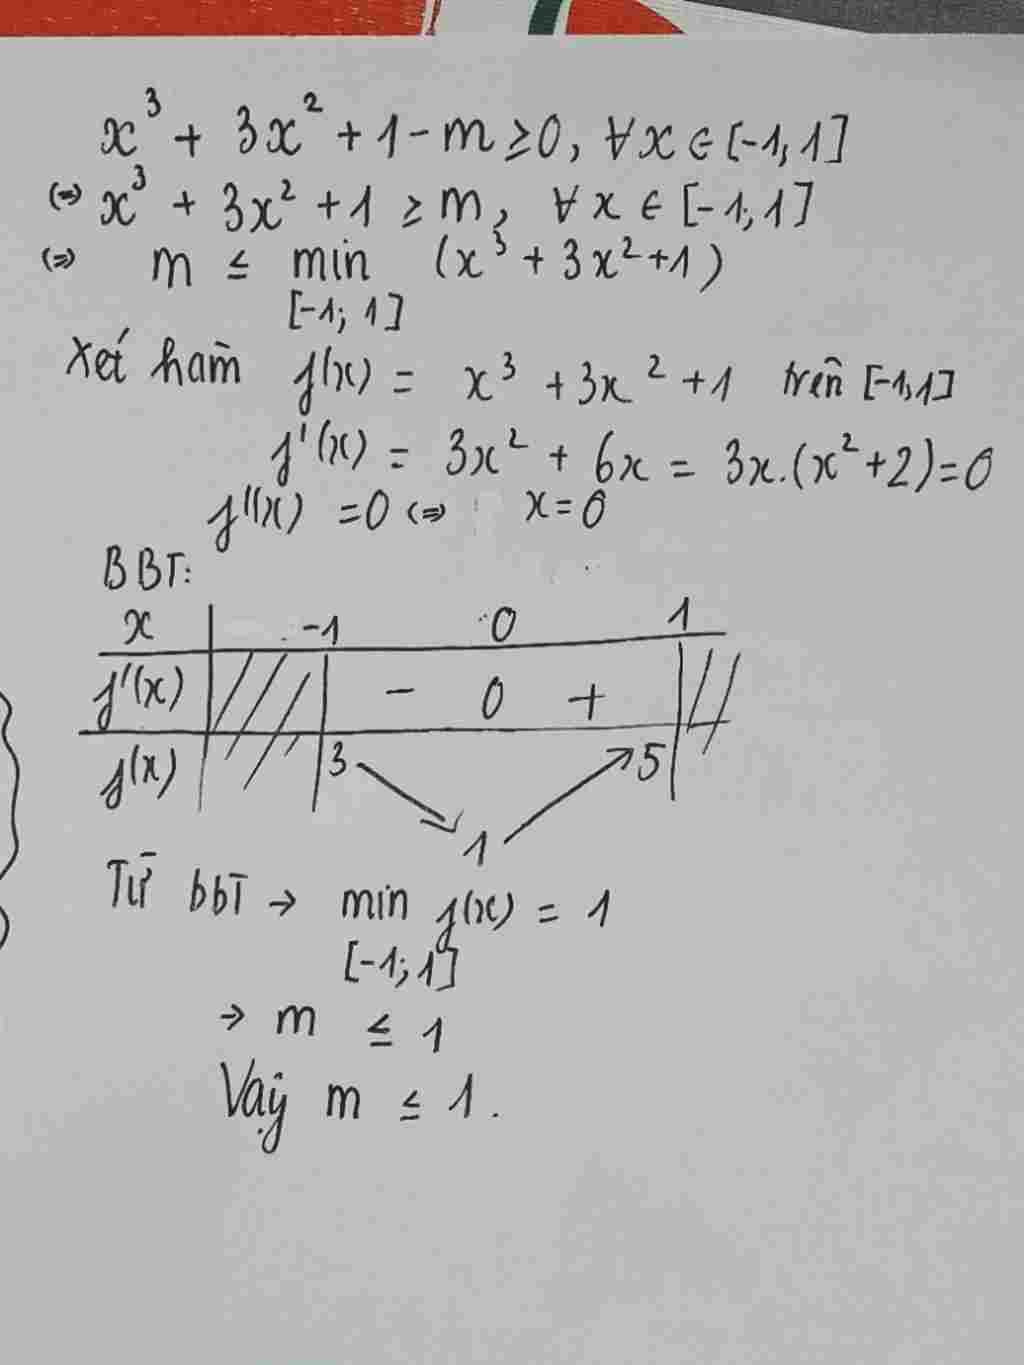 x³ + 3x² + 1 - m ≥ 0, ∀x ∈ [-1, 1]
(=) x³ + 3x² + 1 ≥ m, ∀x ∈ [-1, 1]
(=) m ≤ min (x³ + 3x² + 1)
[-1; 1]
Xét hàm f(x) = x³ + 3x² + 1 trên [-1,1]
f'(x) = 3x² + 6x = 3x.(x² + 2) = 0
f'(x) = 0 (=) x = 0
BBT:
x -1 0 1
f'(x) - 0 +
f(x) 3 5
1
Từ bbT → min f(x) = 1
[-1; 1]
→ m ≤ 1
Vậy m ≤ 1.